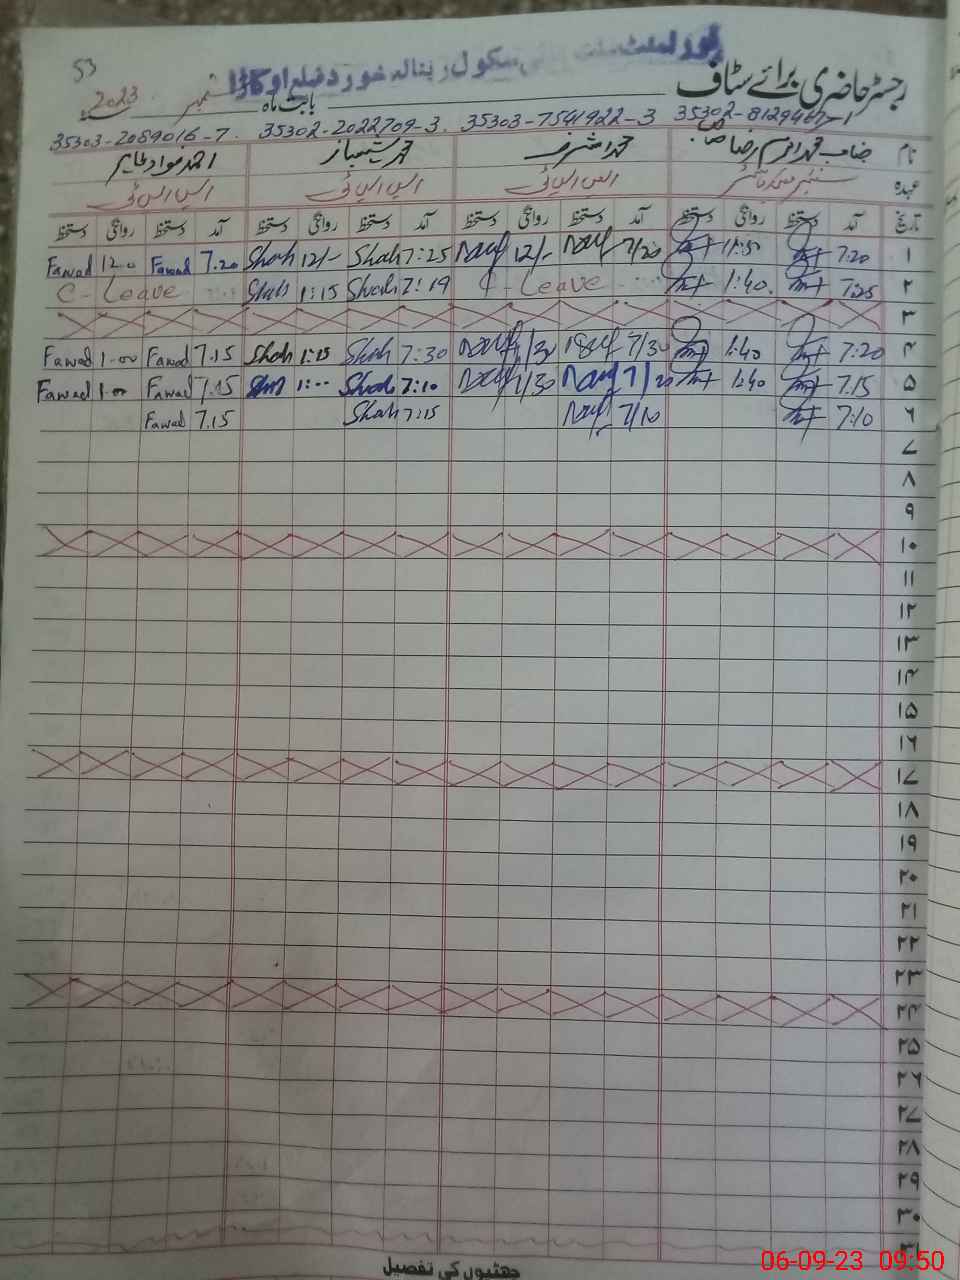 53
سکول رینالہ خورد ضلع اوکاڑا
رجسٹر حاضری برائے سٹاف
بابت ماہ ستمبر 2023
35302-8129467-1 35303-7541922-3 35302-2022709-3 35303-2089016-7
نام محمد اشرف محمد شہباز احمد فواد طاہر
عہدہ ایس ایس ٹی ایس ایس ٹی ایس ایس ٹی
تاریخ آمد دستخط روانگی دستخط آمد دستخط روانگی دستخط آمد دستخط روانگی دستخط آمد دستخط روانگی دستخط
۱ 7:20 11:30 7/20 12/- 7:25 Shah 12/- Shah 7.20 Fawad 12.0 Fawad
۲ 7:25 1:40 C-Leave 7:19 Shah 1:15 Shah C-Leave
۳
۴ 7:20 1:40 7/30 1/30 7:30 Shah 1:15 Shah 7.15 Fawad 1.00 Fawad
۵ 7.15 1:40 7/20 1/30 7:10 Shah 1:00 7.15 Fawad 1.00 Fawad
۶ 7:10 7/10 7:15 Shah 7.15 Fawad
۷
۸
۹
۱۰
۱۱
۱۲
۱۳
۱۴
۱۵
۱۶
۱۷
۱۸
۱۹
۲۰
۲۱
۲۲
۲۳
۲۴
۲۵
۲۶
۲۷
۲۸
۲۹
۳۰
۳۱
چھٹیوں کی تفصیل
06-09-23 09:50